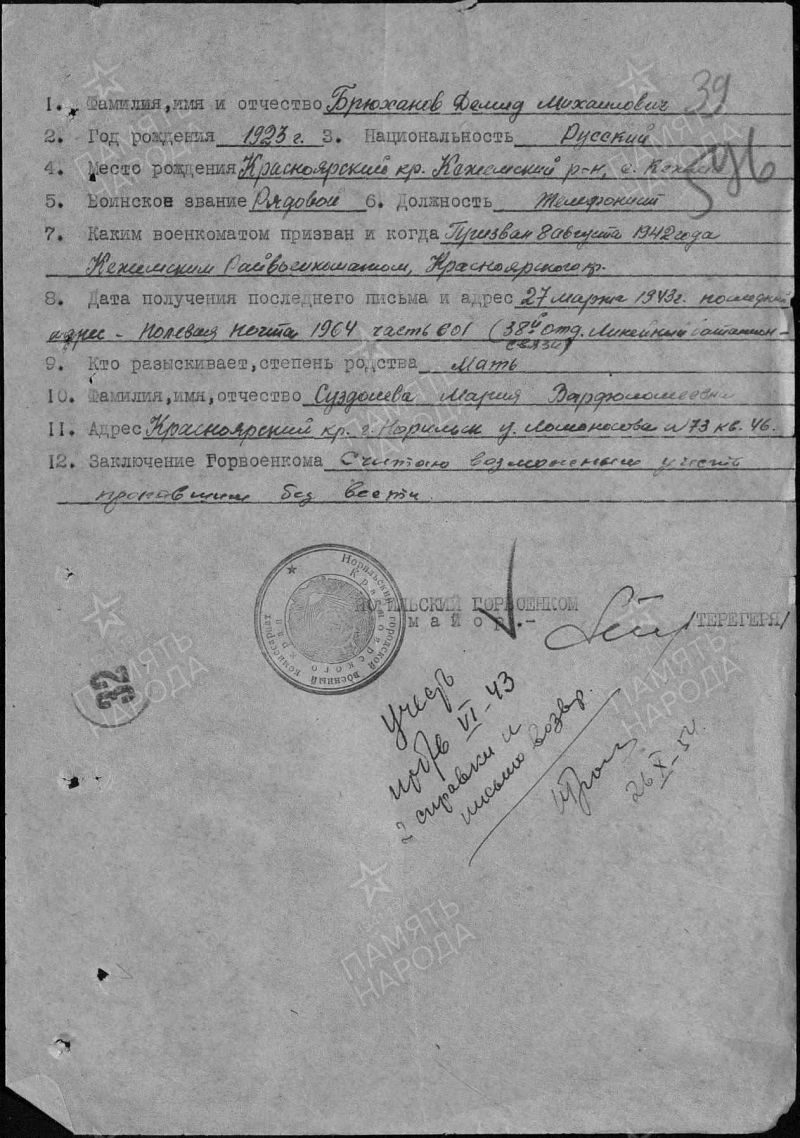 39
1. Фамилия,имя и отчество Брюханов Демид Михаилович
2. Год рождения 1923 г. 3. Национальность Русский
4. Место рождения Красноярский кр. Кежемский р-н, с. Кежма
5. Воинское звание Рядовой 6. Должность Телефонист
7. Каким военкоматом призван и когда Призван 8 августа 1942 года
Кежемским Райвоенкоматом, Красноярского кр.
8. Дата получения последнего письма и адрес 27 марта 1943 г. последний
адрес - полевая почта 1964 часть 601 (38й отд. Линейный баталион
связи)
9. Кто разыскивает,степень родства Мать
10. Фамилия,имя,отчество Суздалева Мария Варфоломеевна
11. Адрес Красноярский кр. г. Норильск у. Ломоносова №73 кв. 46.
12. Заключение Горвоенкома Считаю возможным учесть
пропавшим без вести.
Норильский городской военный комиссариат
Красноярского края
НОРИЛЬСКИЙ ГОРВОЕНКОМ
майор.- /ТЕРЕГЕРЯ/
32
учесть
VI-43
2 справки и
письмо возвр.
26 X-54
ПАМЯТЬ
НАРОДА
ПАМЯТЬ
НАРОДА
ПАМЯТЬ
НАРОДА
ПАМЯТЬ
НАРОДА
ПАМЯТЬ
НАРОДА